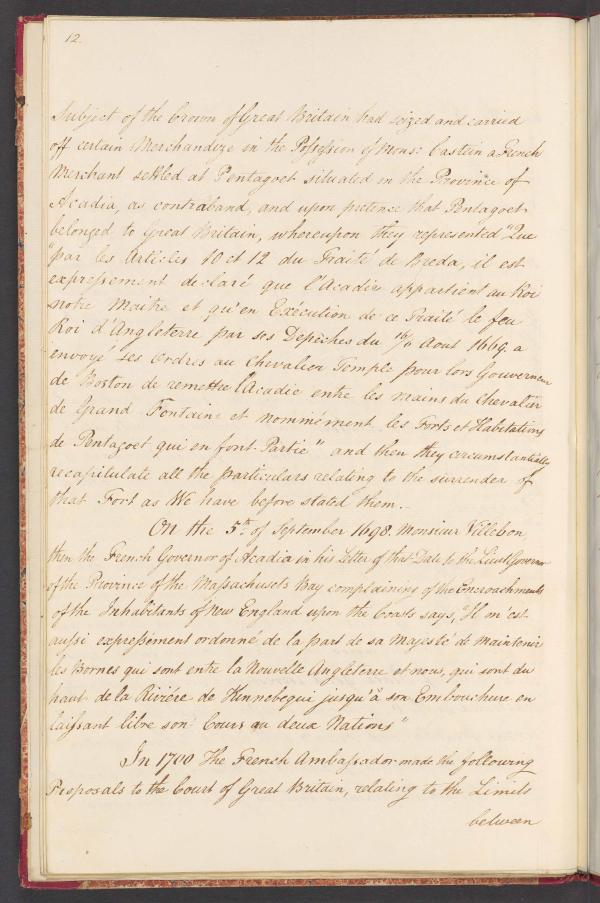 12.
Subject of the Crown of Great Britain had seized and carried
off certain Merchandize in the Possession of Mons: Castein a French
Merchant settled at Pentagoet situated in the Province of
Acadia, as contraband, and upon pretence that Pentagoet
belonged to Great Britain, whereupon they represented "Que
"par les Articles 10 et 12 du Traité de Breda, il est
expressement declaré que l'Acadie appartient au Roi
notre Maitre et qu'en Exécution de ce Traité le feu
Roi d'Angleterre par ses Depeches du 16/6 Aout 1669. a
envoyé ses ordres au Chevalier Temple pour lors Gouverneur
de Boston de remettre l'Acadie entre les mains du Chevalier
de Grand Fontaine et nommément les Forts et Habitations
de Pentagoet qui en font Partie" and then they circumstantially
recapitulate all the particulars relating to the surrender of
that Fort as We have before stated them.
On the 5th of September 1698. Monsieur Villebon,
then the French Governor of Acadia in his Letter of that Date to the Lieut Governor
of the Province of the Massachusets Bay complaining of the Encroachments
of the Inhabitants of New England upon the Coasts says, "Il m'est
aussi expressement ordonné de la part de sa Majesté de maintenir
les Bornes qui sont entre la Nouvelle Angleterre et nous, qui sont du
haut de la Riviére de Kinnebequi jusqu'à son Embouchure en
laissant libre son Cours au deux Nations"
In 1700 The French Ambassador made the following
Proposals to the Court of Great Britain, relating to the Limits
between